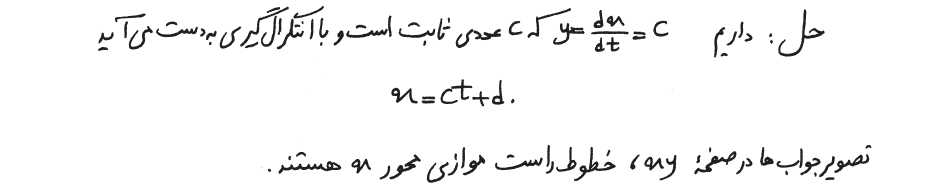 حل: داریم y = dx/dt = C که C عددی ثابت است و با انتگرال‌گیری به دست می‌آید
x = ct + d.
تصویر جواب‌ها در صفحهٔ xy، خطوط راست موازی محور x هستند.